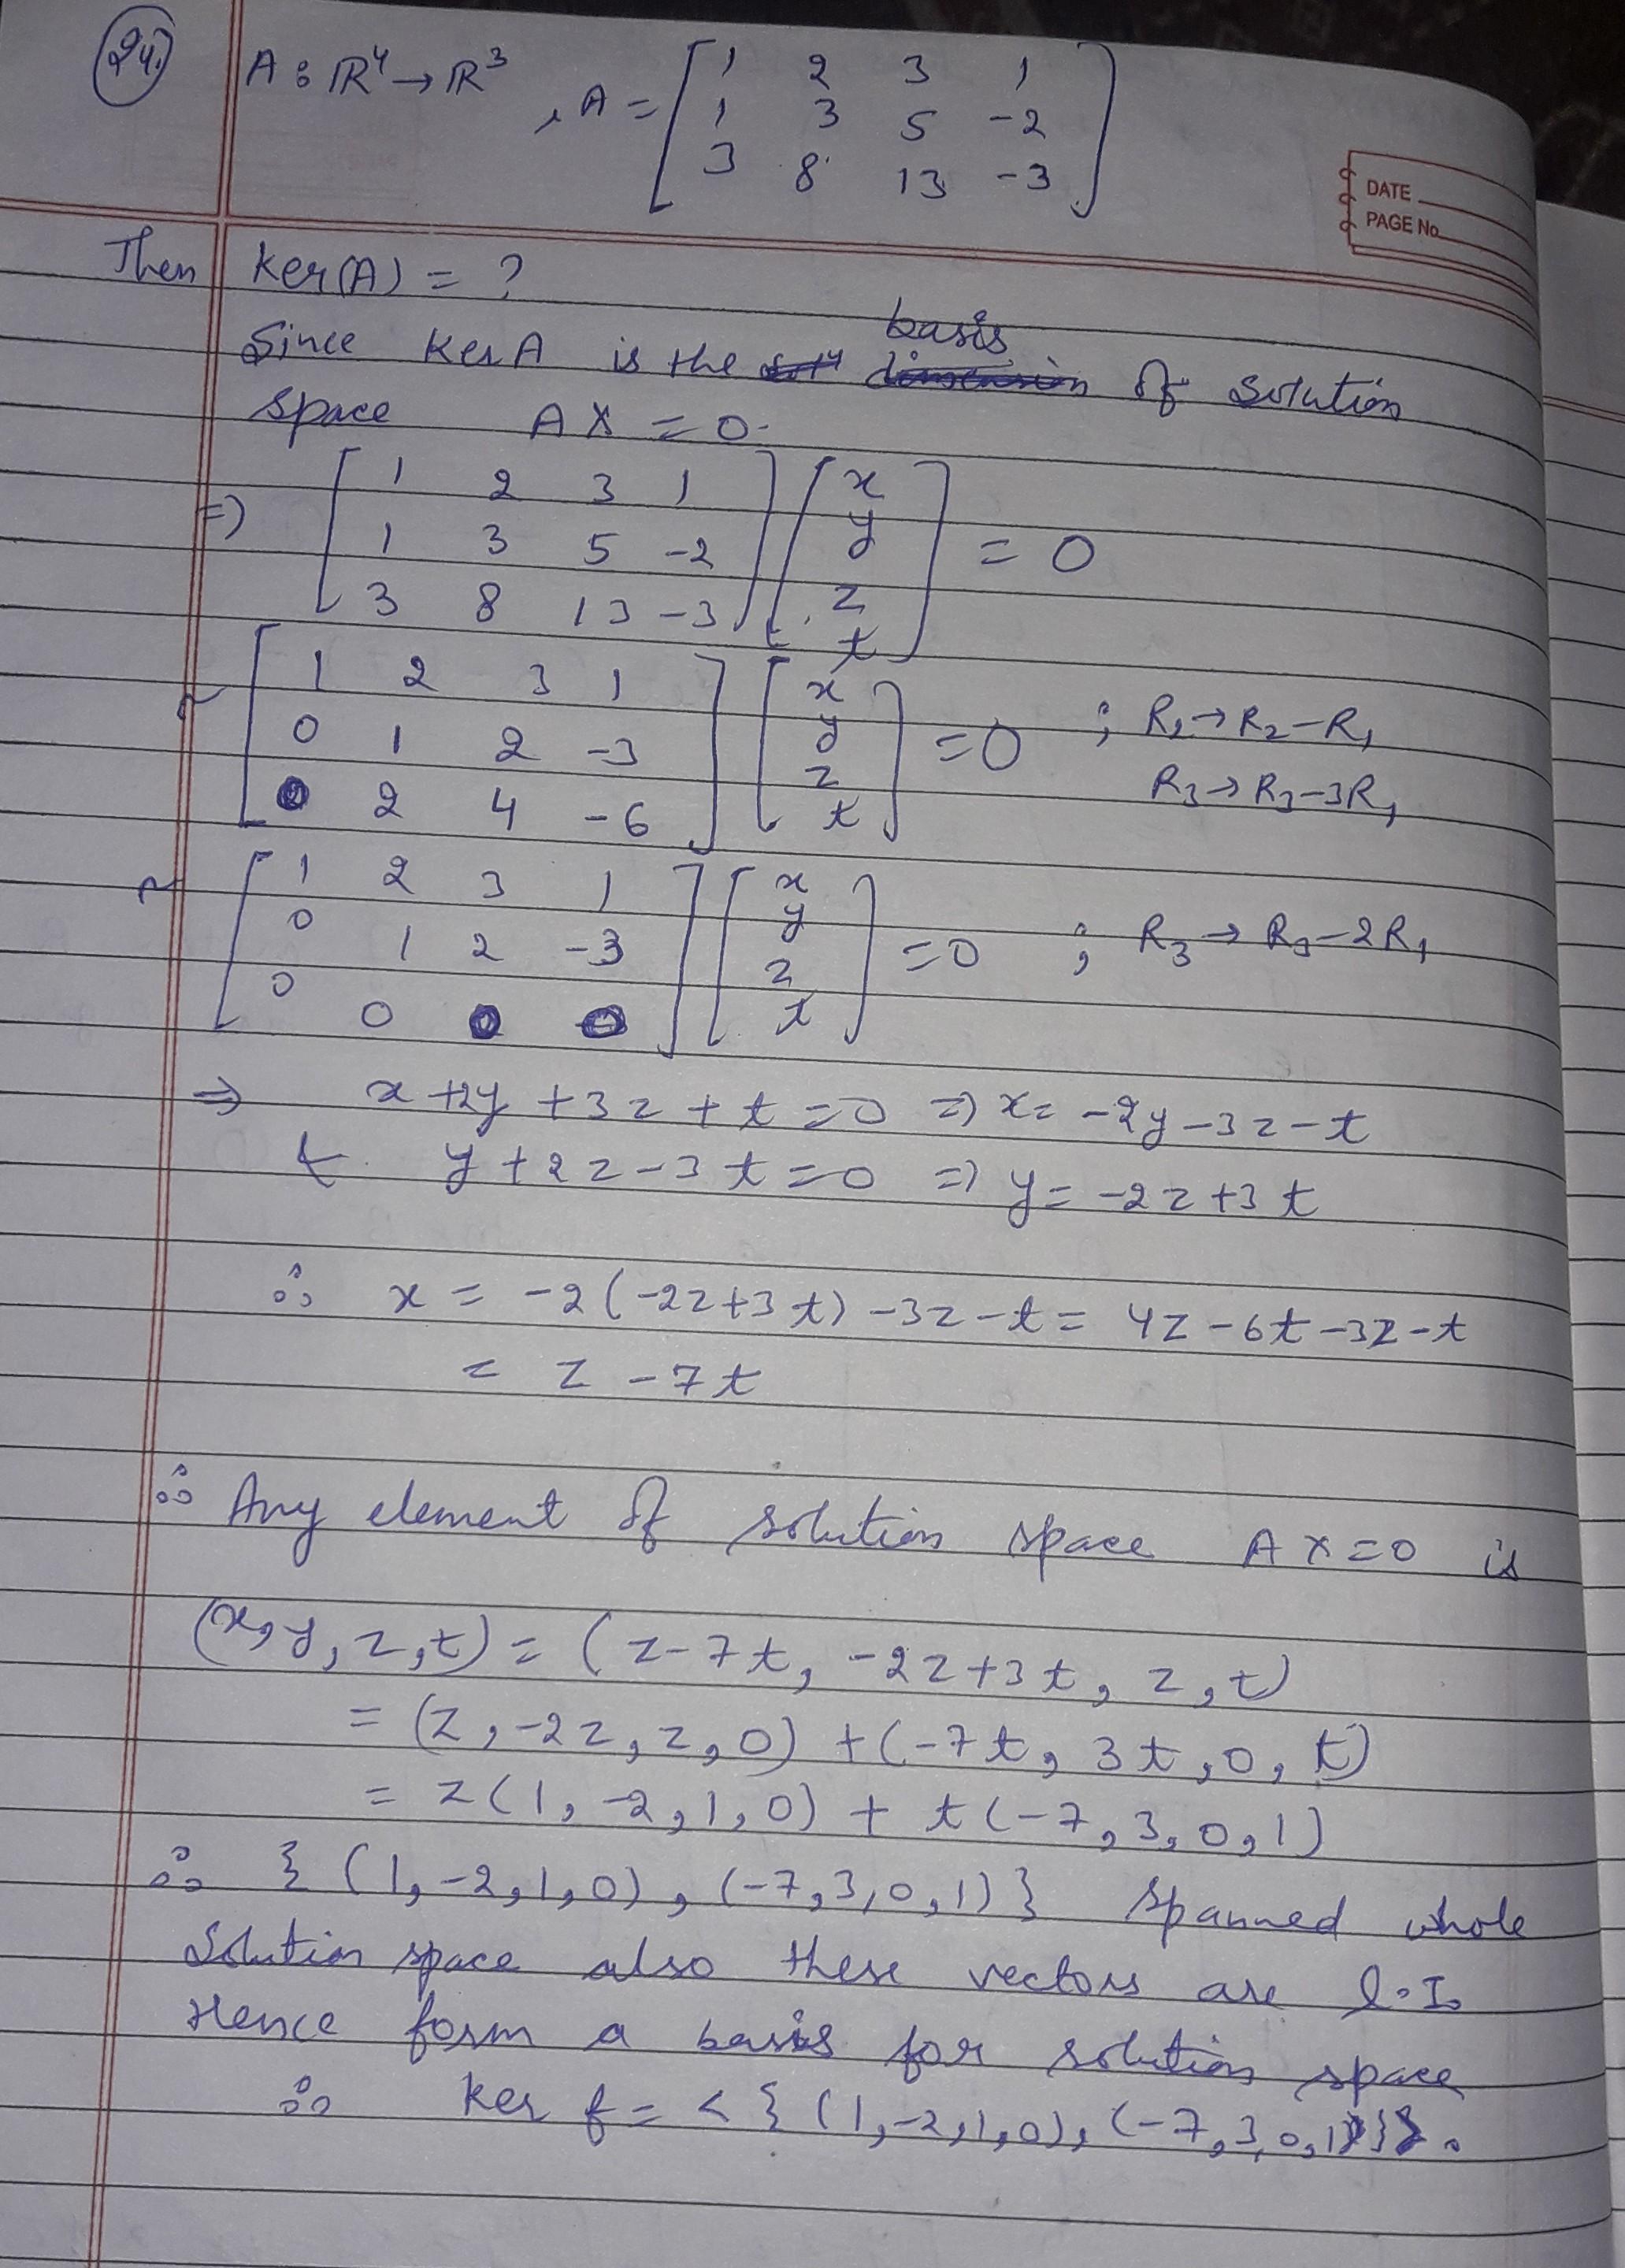 24.
A : ℝ⁴ → ℝ³ , A = [ 1 2 3 1
1 3 5 -2
3 8 13 -3 ]
DATE
PAGE No.
Then Ker(A) = ?
basis
Since Ker A is the dimension of solution
space AX = 0.
⇒ [ 1 2 3 1
1 3 5 -2
3 8 13 -3 ] [ x
y
z
t ] = 0
~ [ 1 2 3 1
0 1 2 -3
0 2 4 -6 ] [ x
y
z
t ] = 0 ; R₂ → R₂ - R₁
R₃ → R₃ - 3R₁
~ [ 1 2 3 1
0 1 2 -3
0 0 0 0 ] [ x
y
z
t ] = 0 ; R₃ → R₃ - 2R₁
⇒ x + 2y + 3z + t = 0 ⇒ x = -2y - 3z - t
& y + 2z - 3t = 0 ⇒ y = -2z + 3t
∴ x = -2(-2z + 3t) - 3z - t = 4z - 6t - 3z - t
= z - 7t
∴ Any element of solution space AX = 0 is
(x, y, z, t) = (z - 7t, -2z + 3t, z, t)
= (z, -2z, z, 0) + (-7t, 3t, 0, t)
= z(1, -2, 1, 0) + t(-7, 3, 0, 1)
∴ { (1, -2, 1, 0), (-7, 3, 0, 1) } spanned whole
Solution space also these vectors are l.I.
Hence form a basis for solution space
∴ Ker f = < { (1, -2, 1, 0), (-7, 3, 0, 1) } >.